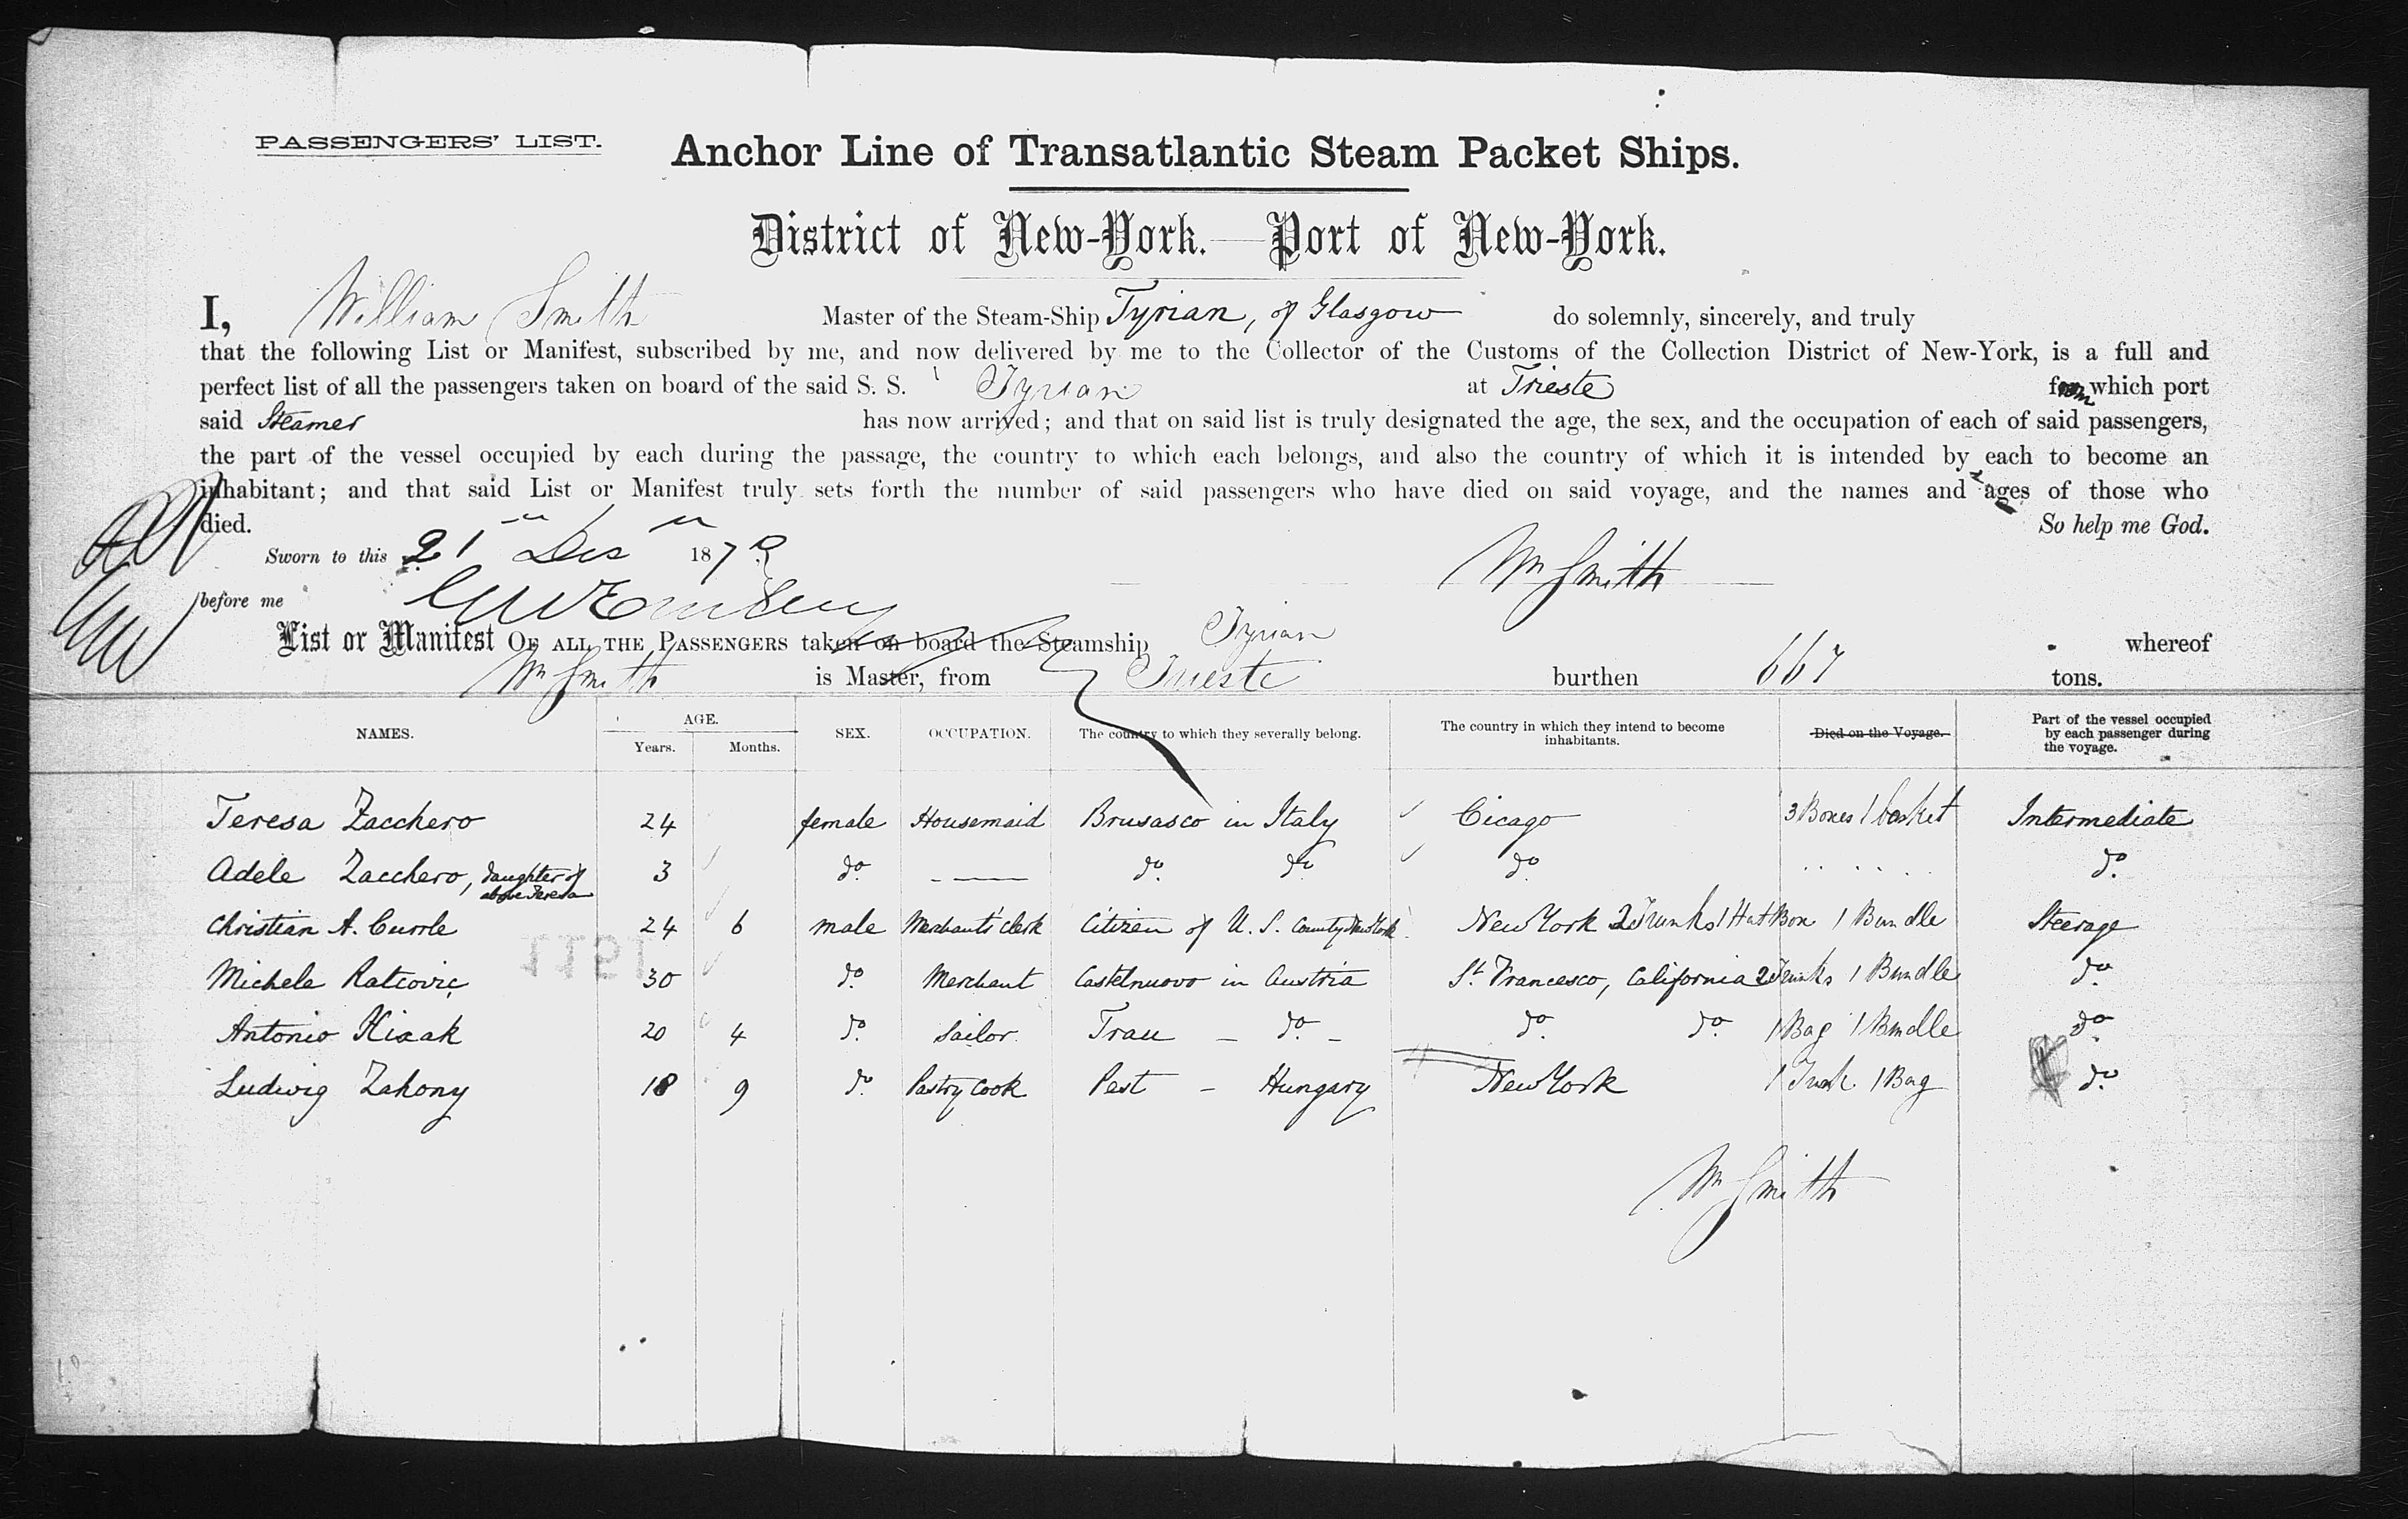 PASSENGERS' LIST.
Anchor Line of Transatlantic Steam Packet Ships.
District of New-York.—Port of New-York.
I, William Smith Master of the Steam-Ship Tyrian, of Glasgow do solemnly, sincerely, and truly
that the following List or Manifest, subscribed by me, and now delivered by me to the Collector of the Customs of the Collection District of New-York, is a full and
perfect list of all the passengers taken on board of the said S. S. Tyrian at Trieste from which port
said Steamer has now arrived; and that on said list is truly designated the age, the sex, and the occupation of each of said passengers,
the part of the vessel occupied by each during the passage, the country to which each belongs, and also the country of which it is intended by each to become an
inhabitant; and that said List or Manifest truly sets forth the number of said passengers who have died on said voyage, and the names and ages of those who
died. So help me God.
Sworn to this 21 Dec 187 Wm Smith
before me
List or Manifest OF ALL THE PASSENGERS taken on board the Steamship Tyrian whereof
Wm Smith is Master, from Trieste burthen 667 tons.
NAMES. AGE. Years. Months. SEX. OCCUPATION. The country to which they severally belong. The country in which they intend to become inhabitants. Died on the Voyage. Part of the vessel occupied by each passenger during the voyage.
Teresa Zacchero 24 female Housemaid Brusasco in Italy Cicago 3 Boxes 1 basket Intermediate
Adele Zacchero, daughter of above Teresa 3 do - —— do do do . . . . . do
Christian A. Currle 24 6 male Merchant's Clerk Citizen of U. S. County New York New York 2 Trunks 1 Hat Box 1 Bundle Steerage
Michele Ratcovic 30 do Merchant Castelnuovo in Austria St. Francesco, California 2 Trunks 1 Bundle do
Antonio Kixak 20 4 do Sailor Trau - do - do do 1 Bag 1 Bundle do
Ludwig Zahony 18 9 do Pastry Cook Pest - Hungary New York 1 Trunk 1 Bag do
Wm Smith